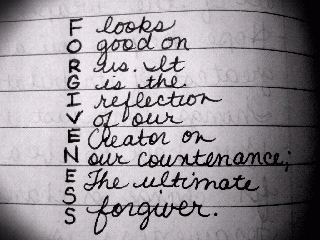 F looks
O good on
R us. It
G is the
I reflection
V of our
E Creator on
N our countenance;
E The ultimate
S forgiver.
S